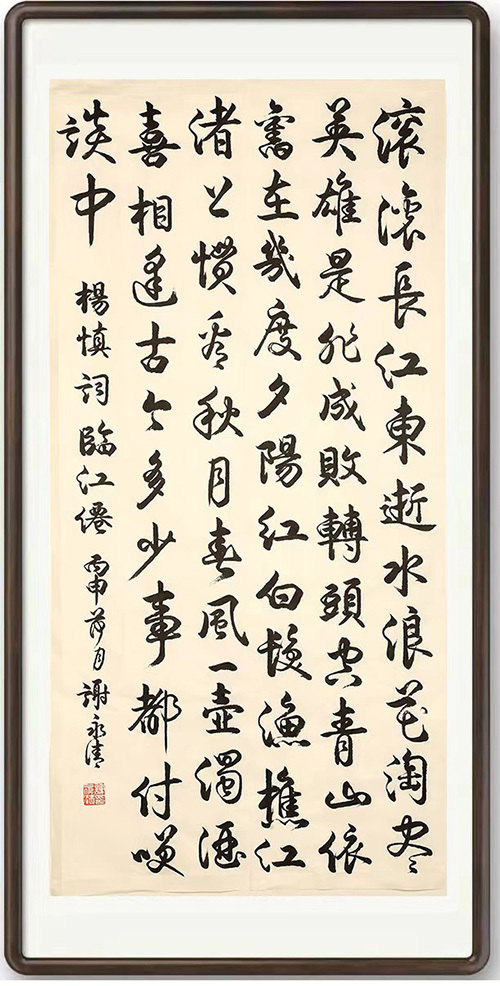 滚滚長江東逝水浪花淘尽
英雄是非成敗轉頭空青山依
舊在幾度夕陽紅白髮漁樵江
渚上慣看秋月春風一壺濁酒
喜相逢古今多少事都付咲
談中
楊慎詞臨江僊 丙申荷月 謝永清